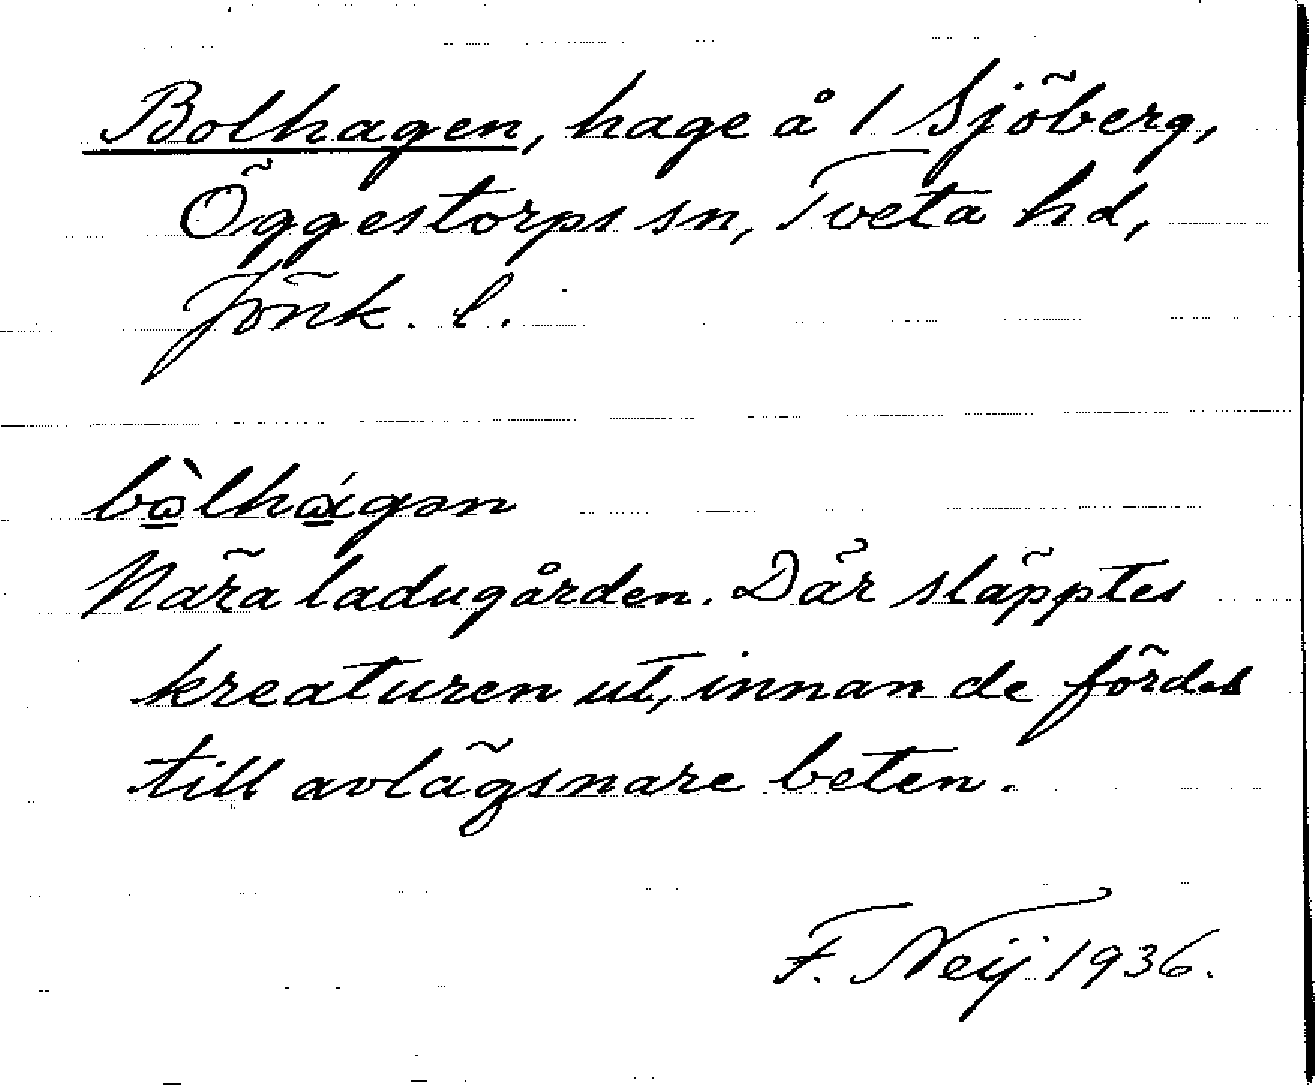 Bolhagen, hage å 1 Sjöberg,
Öggestorps sn, Tveta hd,
Jönk. l.
bòlhágən
Nära ladugården. Där släpptes
kreaturen ut, innan de fördes
till avlägsnare beten.
F. Neij 1936.